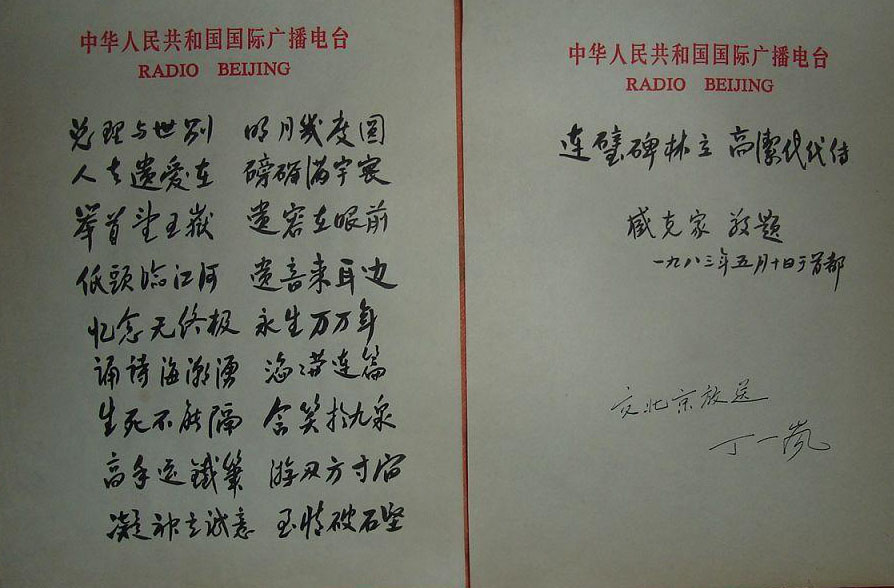 中华人民共和国国际广播电台
RADIO BEIJING
总理与世别 明月几度圆
人去遗爱在 磅礴满宇寰
举首望五嶽 遗容在眼前
低頭临江河 遗音来耳边
忆念无终极 永生万万年
诵詩海潮湧 滔滔连篇
生死不能隔 含笑於九泉
高手运鐵筆 游刃方寸间
凝神立诚意 至情破石坚
中华人民共和国国际广播电台
RADIO BEIJING
连璧碑林立 高潔代代传
臧克家 敬題
一九八三年五月十日于首都
交北京放送
丁一岚